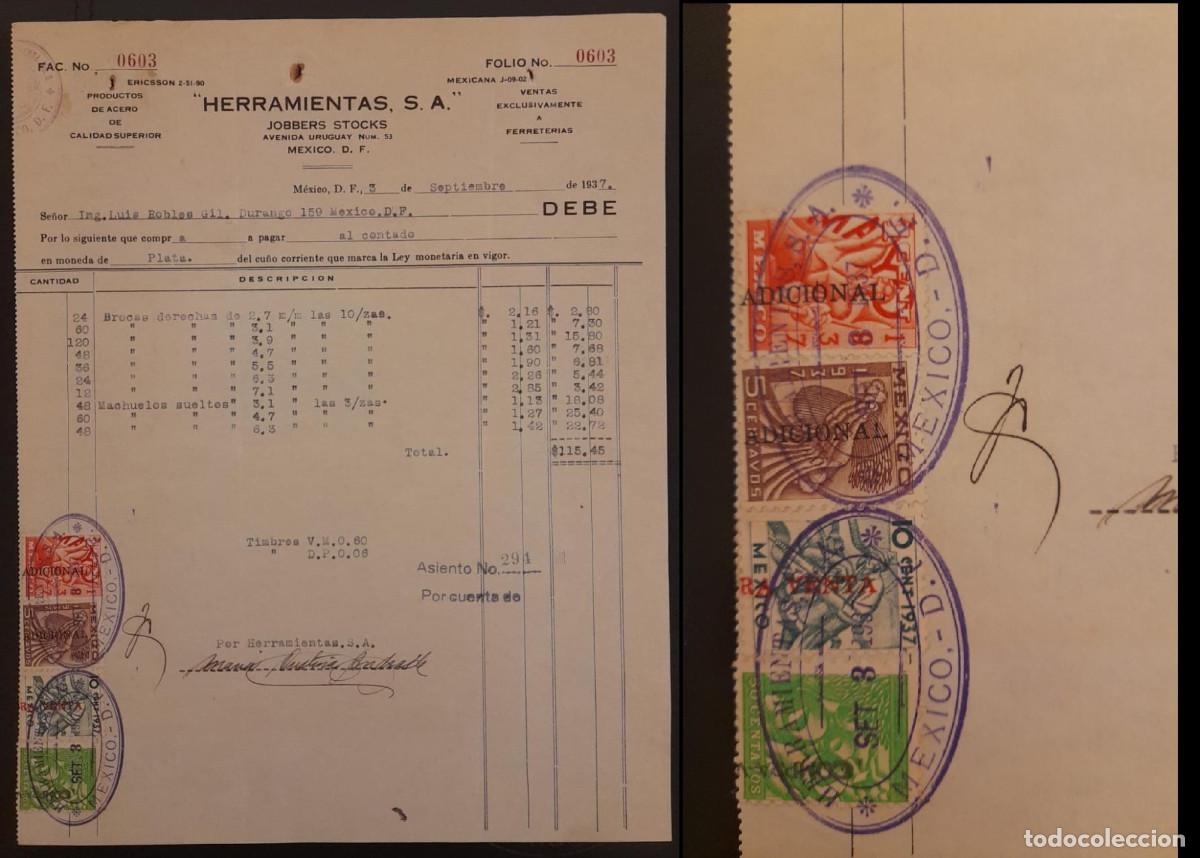 FAC. No. 0603
FOLIO No. 0603
ERICSSON 2-51-90
MEXICANA J-09-02
PRODUCTOS
DE ACERO
DE
CALIDAD SUPERIOR
"HERRAMIENTAS, S. A."
JOBBERS STOCKS
AVENIDA URUGUAY NUM. 53
MEXICO. D. F.
VENTAS
EXCLUSIVAMENTE
A
FERRETERIAS
México, D. F., 3 de Septiembre de 1937.
Señor Ing. Luis Robles Gil. Durango 159 Mexico, D.F. DEBE
Por lo siguiente que compr a a pagar al contado
en moneda de Plata. del cuño corriente que marca la Ley monetaria en vigor.
CANTIDAD DESCRIPCION
24 Brocas derechas de 2.7 m/m las 10/zas. $. 2.16 $. 2.80
60 " " " 3.1 " " " " 1.21 " 7.30
120 " " " 3.9 " " " " 1.31 " 15.80
48 " " " 4.7 " " " " 1.60 " 7.68
36 " " " 5.5 " " " " 1.90 " 6.81
24 " " " 6.3 " " " " 2.26 " 5.44
12 " " " 7.1 " " " " 2.85 " 3.42
48 Machuelos sueltos" 3.1 " las 3/zas. " 1.13 " 18.08
60 " " " 4.7 " " " " 1.27 " 25.40
48 " " " 6.3 " " " " 1.42 " 22.72
Total. $115.45
Timbres V.M.0.60
" D.P.0.06
Asiento No. 294
Por cuenta de
Por Herramientas, S.A.
ADICIONAL
ADICIONAL
VENTA
MEXICO
10 CENT-1937
SET. 3
MEXICO.- D. F.
MEXICO.- D. F.
MEXICO
ADICIONAL
MEXICO
1937
MEXICO
5 CENTAVOS
ADICIONAL
MEXICO.- D. F.
10 CENT-1937
MEXICO
RA VENTA
HERRAMIENTAS, S. A.
SET 3 1937
MEXICO.- D. F.
todocoleccion